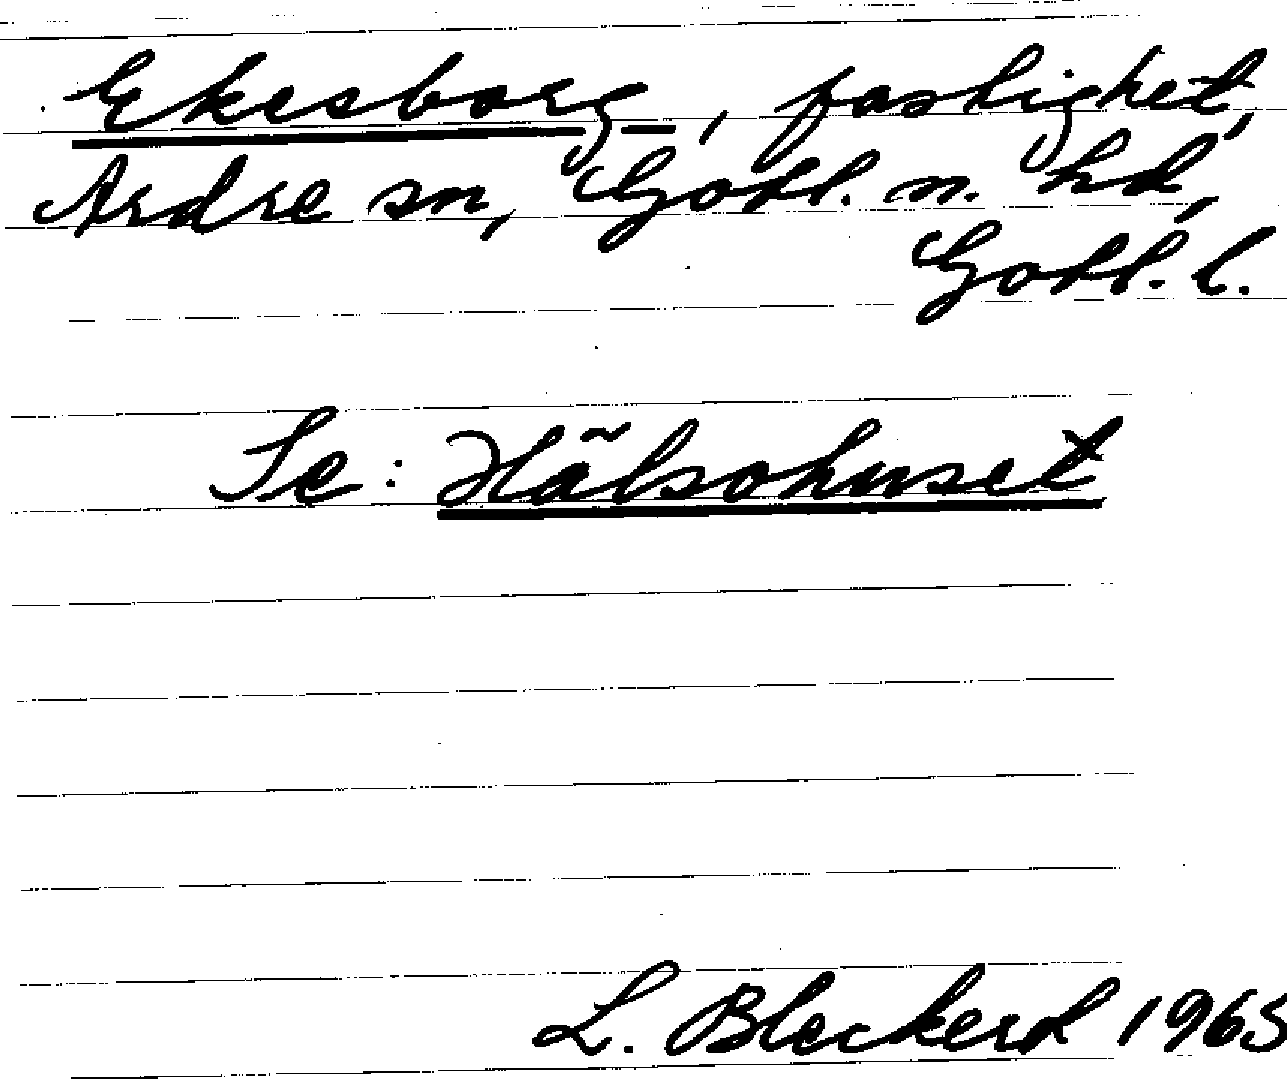 Ekesborg, fastighet,
Ardre sn, Gotl. n. hd,
Gotl. l.
Se: Hälsohuset
L. Bleckerd 1965